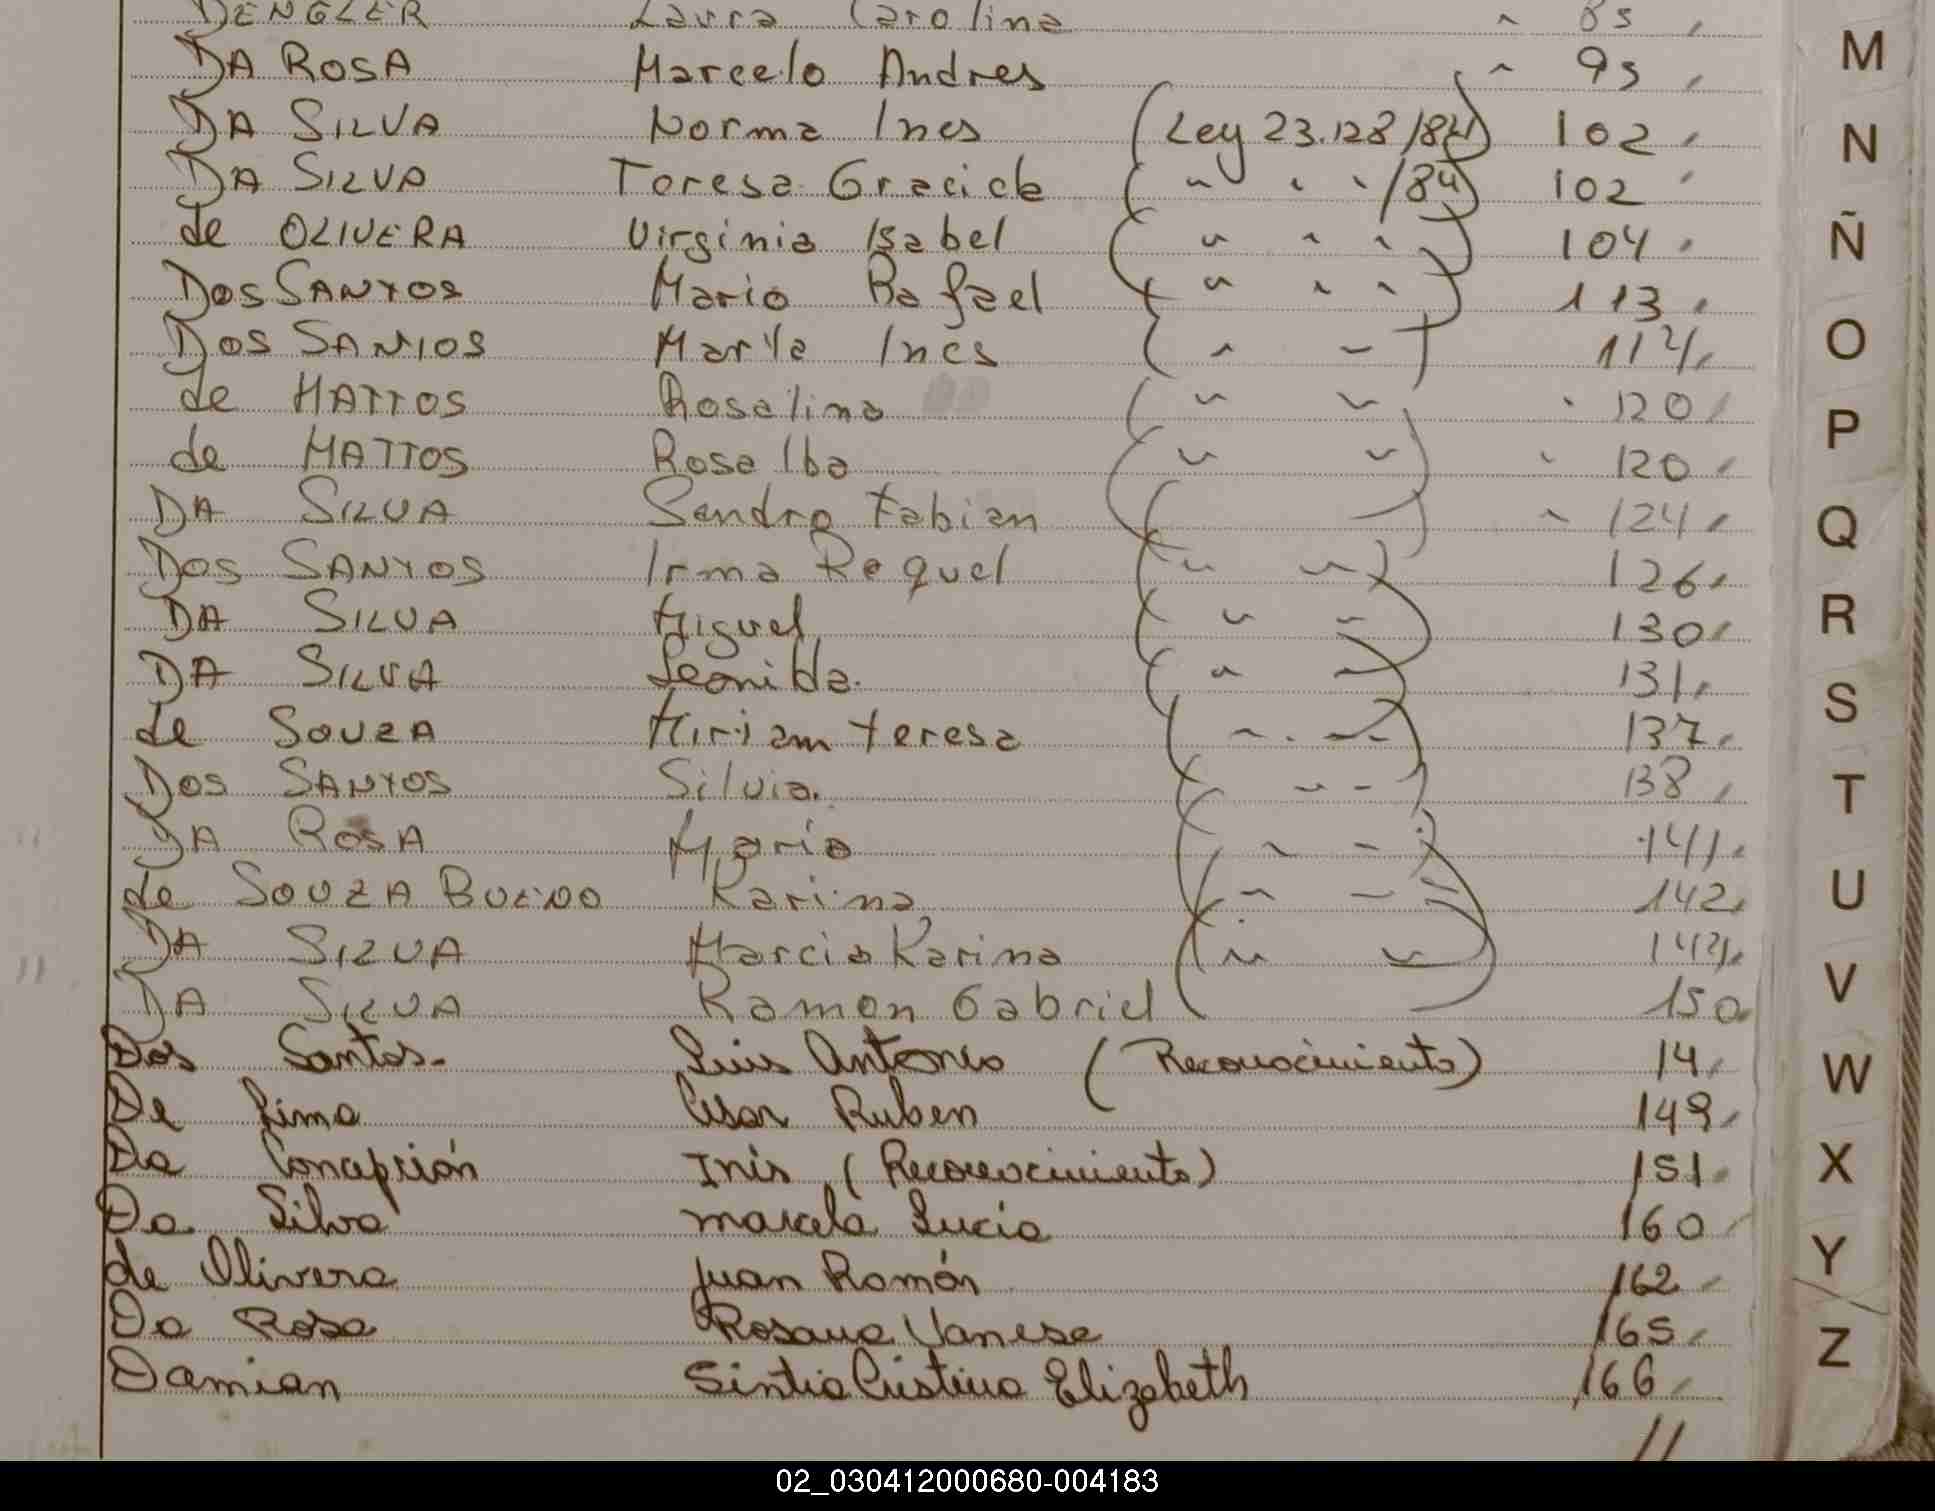 DENGLER Laura Carolina " 85,
DA ROSA Marcelo Andres " 95,
DA SILVA Norma Ines (Ley 23.128/84) 102,
DA SILVA Teresa Graciela ( " " " /84) 102
de OLIVERA Virginia Isabel ( " " " ) 104,
DOS SANTOS Mario Rafael ( " " " ) 113,
DOS SANTOS Marta Ines ( " " ) 114,
de MATTOS Rosalina ( " " ) " 120,
de MATTOS Rosalba ( " " ) " 120,
DA SILVA Sandro Fabian ( ) " 124,
DOS SANTOS Irma Raquel ( " " ) 126,
DA SILVA Miguel ( " " ) 130,
DA SILVA Leonilda. ( " " ) 131,
de SOUZA Miriam Teresa ( " " " ) 137,
DOS SANTOS Silvia. ( " " ) 138,
DA ROSA Mario ( " " ) 141,
de SOUZA BUENO Karina ( " " " ) 142,
DA SILVA Marcia Karina ( " " )
DA SILVA Ramon Gabriel ( ) 150
Dos Santos- Luis Antonio (Reconocimiento) 14,
De Lima Cesar Ruben 149,
Da Concepción Inés (Reconocimiento) 151,
Da Silva Marcela Lucia 160
de Olivera Juan Román 162
Da Rosa Rosana Vanesa 165,
Damian Sintia Cristina Elizabeth 166,
//
M
N
Ñ
O
P
Q
R
S
T
U
V
W
X
Y
Z
02_030412000680-004183